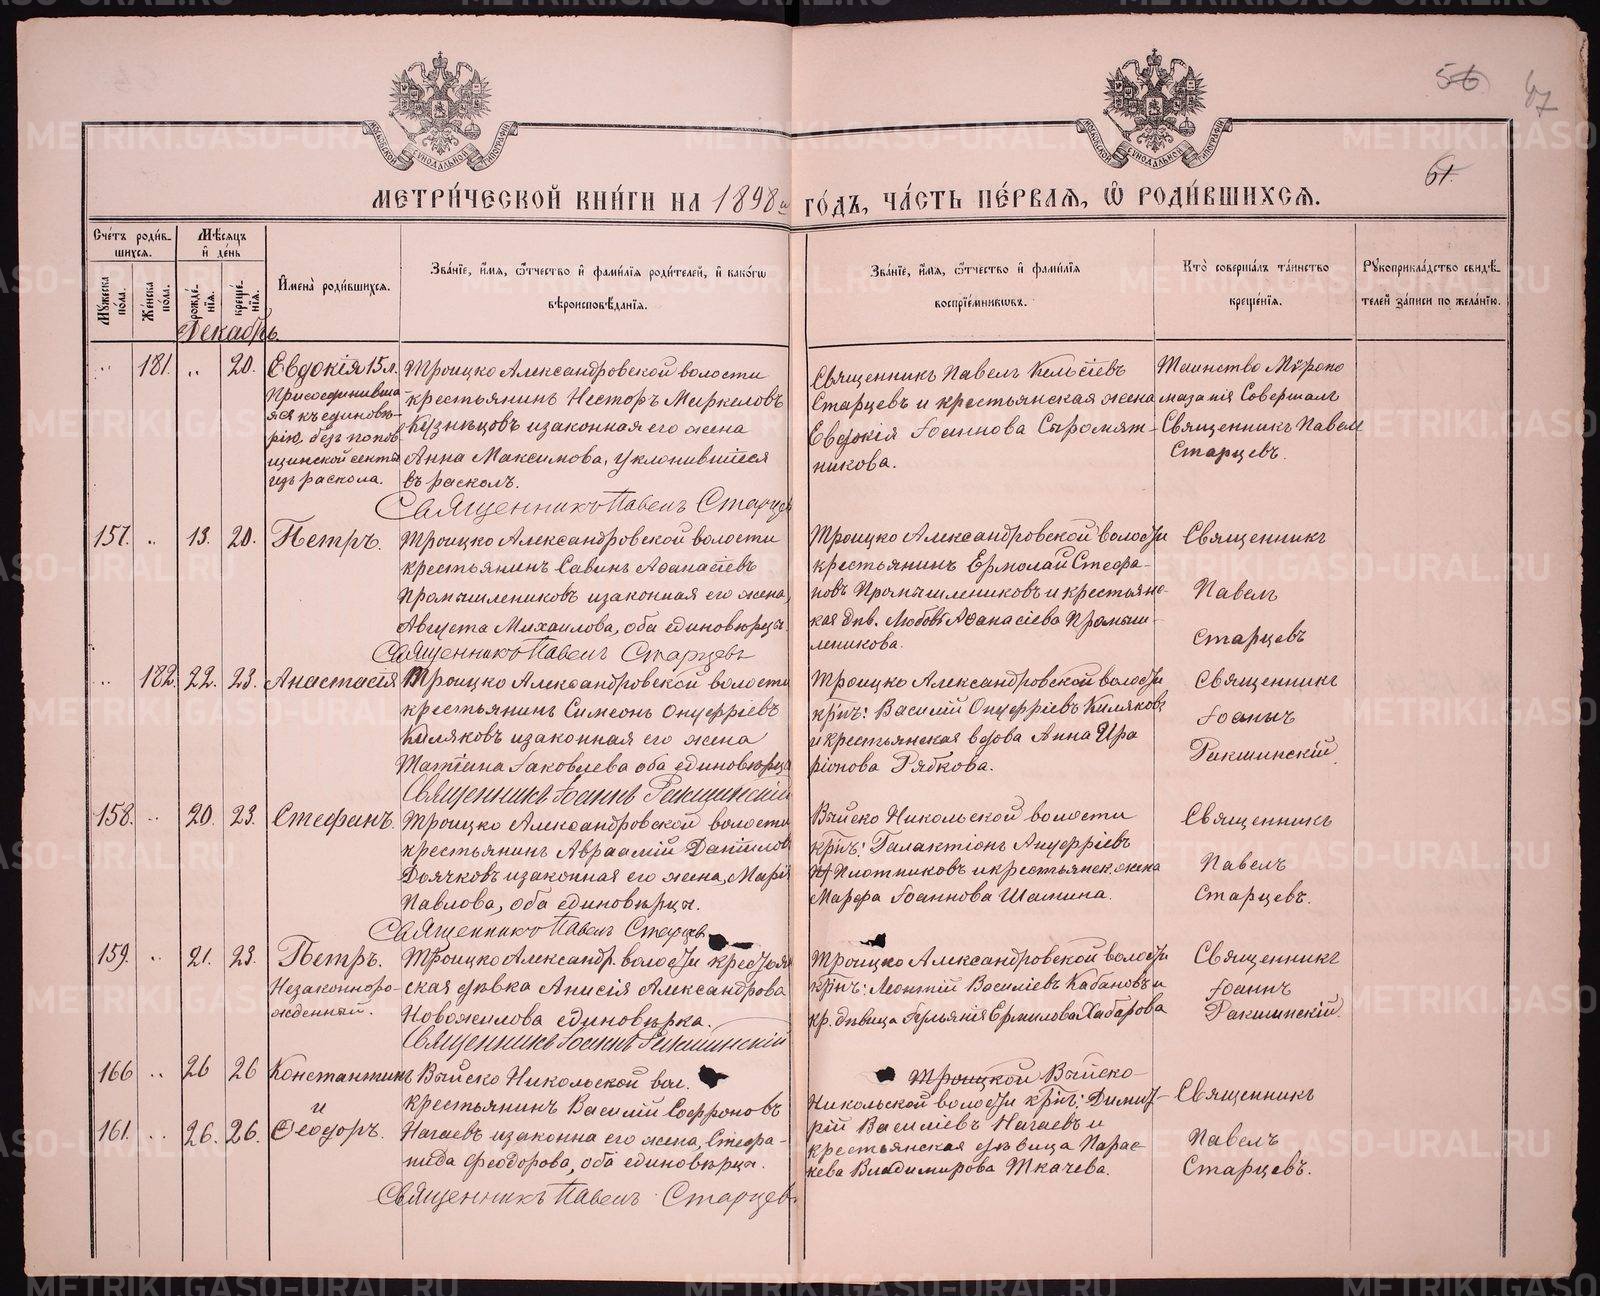 56
67
61.
МОСКОВСКОЙ СѴНОДАЛЬНОЙ ТИПОГРАФІИ
МОСКОВСКОЙ СѴНОДАЛЬНОЙ ТИПОГРАФІИ
МЕТРИ́ЧЕСКОЙ КНИ́ГИ НА 1898 й ГО́ДЪ, ЧА́СТЬ ПЕ́РВАѦ, Ѡ҆ РОДИ́ВШИХСѦ.
Сче́тъ роди́в-
шихсѧ.
Мꙋ́жеска по́ла.
Же́нска по́ла.
Мѣ́сѧцъ
и҆ де́нь
рожде́-нїѧ.
креще́-нїѧ.
И҆мена̀ роди́вшихсѧ.
Зва́нїе, и҆́мѧ, ѻ҆́тчество и҆ фами́лїѧ роди́телей, и҆ како́гѡ
вѣроисповѣ́данїѧ.
Зва́нїе, и҆́мѧ, ѻ҆́тчество и҆ фами́лїѧ
воспрїе́мникѡвъ.
Кто̀ соверша́лъ та́инство
креще́нїѧ.
Рꙋкоприкла́дство свидѣ́-
телей за́писи по жела́нїю.
Декабрь.
" 181. " 20.
Евдокія 15 л.
Присоединивша
яся къ единовѣ-
рію, безпопов
щинской секты
изъ раскола.
Троицко Александровской волости
крестьянинъ Несторъ Меркеловъ
Кузнецовъ и законная его жена
Анна Максимова, уклонившіеся
въ расколъ.
Священникъ Павелъ Старцев
Священникъ Павелъ Кельсіевъ
Старцевъ и крестьянская жена
Евдокія Іоаннова Сыромят-
никова.
Таинство Мѵропо
мазанія Совершалъ
Священникъ Павелъ
Старцевъ.
157. " 13. 20.
Петръ.
Троицко Александровской волости
крестьянинъ Савинъ Аѳанасіевъ
Промышлениковъ и законная его жена,
Августа Михаилова, оба единовѣрцы.
Священникъ Павелъ Старцевъ
Троицко Александровской волости
крестьянинъ Ермолай Стефа-
новъ Промышлениковъ и крестьянс-
кая двв. Любовь Аѳанасіева Промыш-
леникова.
Священникъ
Павелъ
Старцевъ
" 182. 22. 23.
Анастасія
Троицко Александровской волости
крестьянинъ Симеонъ Онуфріевъ
Киляковъ и законная его жена
Татіана Іаковлева оба единовѣрцы
Священникъ Іоаннъ Ракшинскій
Троицко Александровской волости
крѣ̅нъ: Василій Онуфріевъ Киляковъ
и крестьянская вдова Анна Ила
ріонова Рябкова.
Священникъ
Іоаннъ
Ракшинскій.
158. " 20. 23.
Стефанъ.
Троицко Александровской волости
крестьянинъ Авраамій Даніилов
Доячковъ и законная его жена, Марія
Павлова, оба единовѣрцы.
Священникъ Павелъ Старцев
Выйско Никольской волости
крнъ: Галактіонъ Ануфріевъ
Плотниковъ и крестьянск. жена
Марѳа Іоаннова Шатина.
Священникъ
Павелъ
Старцевъ.
159. " 21. 23.
Петръ.
Незаконноро-
жденный.
Троицко Александр. волости крестьян
ская дѣвка Анисія Александрова
Новожилова единовѣрка.
Священникъ Іоаннъ Ракшинскій
Троицко Александровской волости
крнъ: Леонтій Василіевъ Кабановъ и
кр. дѣвица Іуліанія Ермилова Хабарова
Священникъ
Іоаннъ
Ракшинскій.
166 " 26 26
Константинъ
и
161. " 26. 26.
Ѳеодоръ.
Выйско Никольской вол.
крестьянинъ Василій Софроновъ
Нагаевъ и законна его жена, Стефа-
нида Ѳеодорова, оба единовѣрцы.
Священникъ Павелъ Старцев.
Троицкой Выйско-
Никольской волости крнъ: Димит-
рій Василіевъ Нагаевъ и
крестьянская дѣвица Парас-
кева Владимирова Ткачева.
Священникъ
Павелъ
Старцевъ.
METRIKI.GASO-URAL.RU